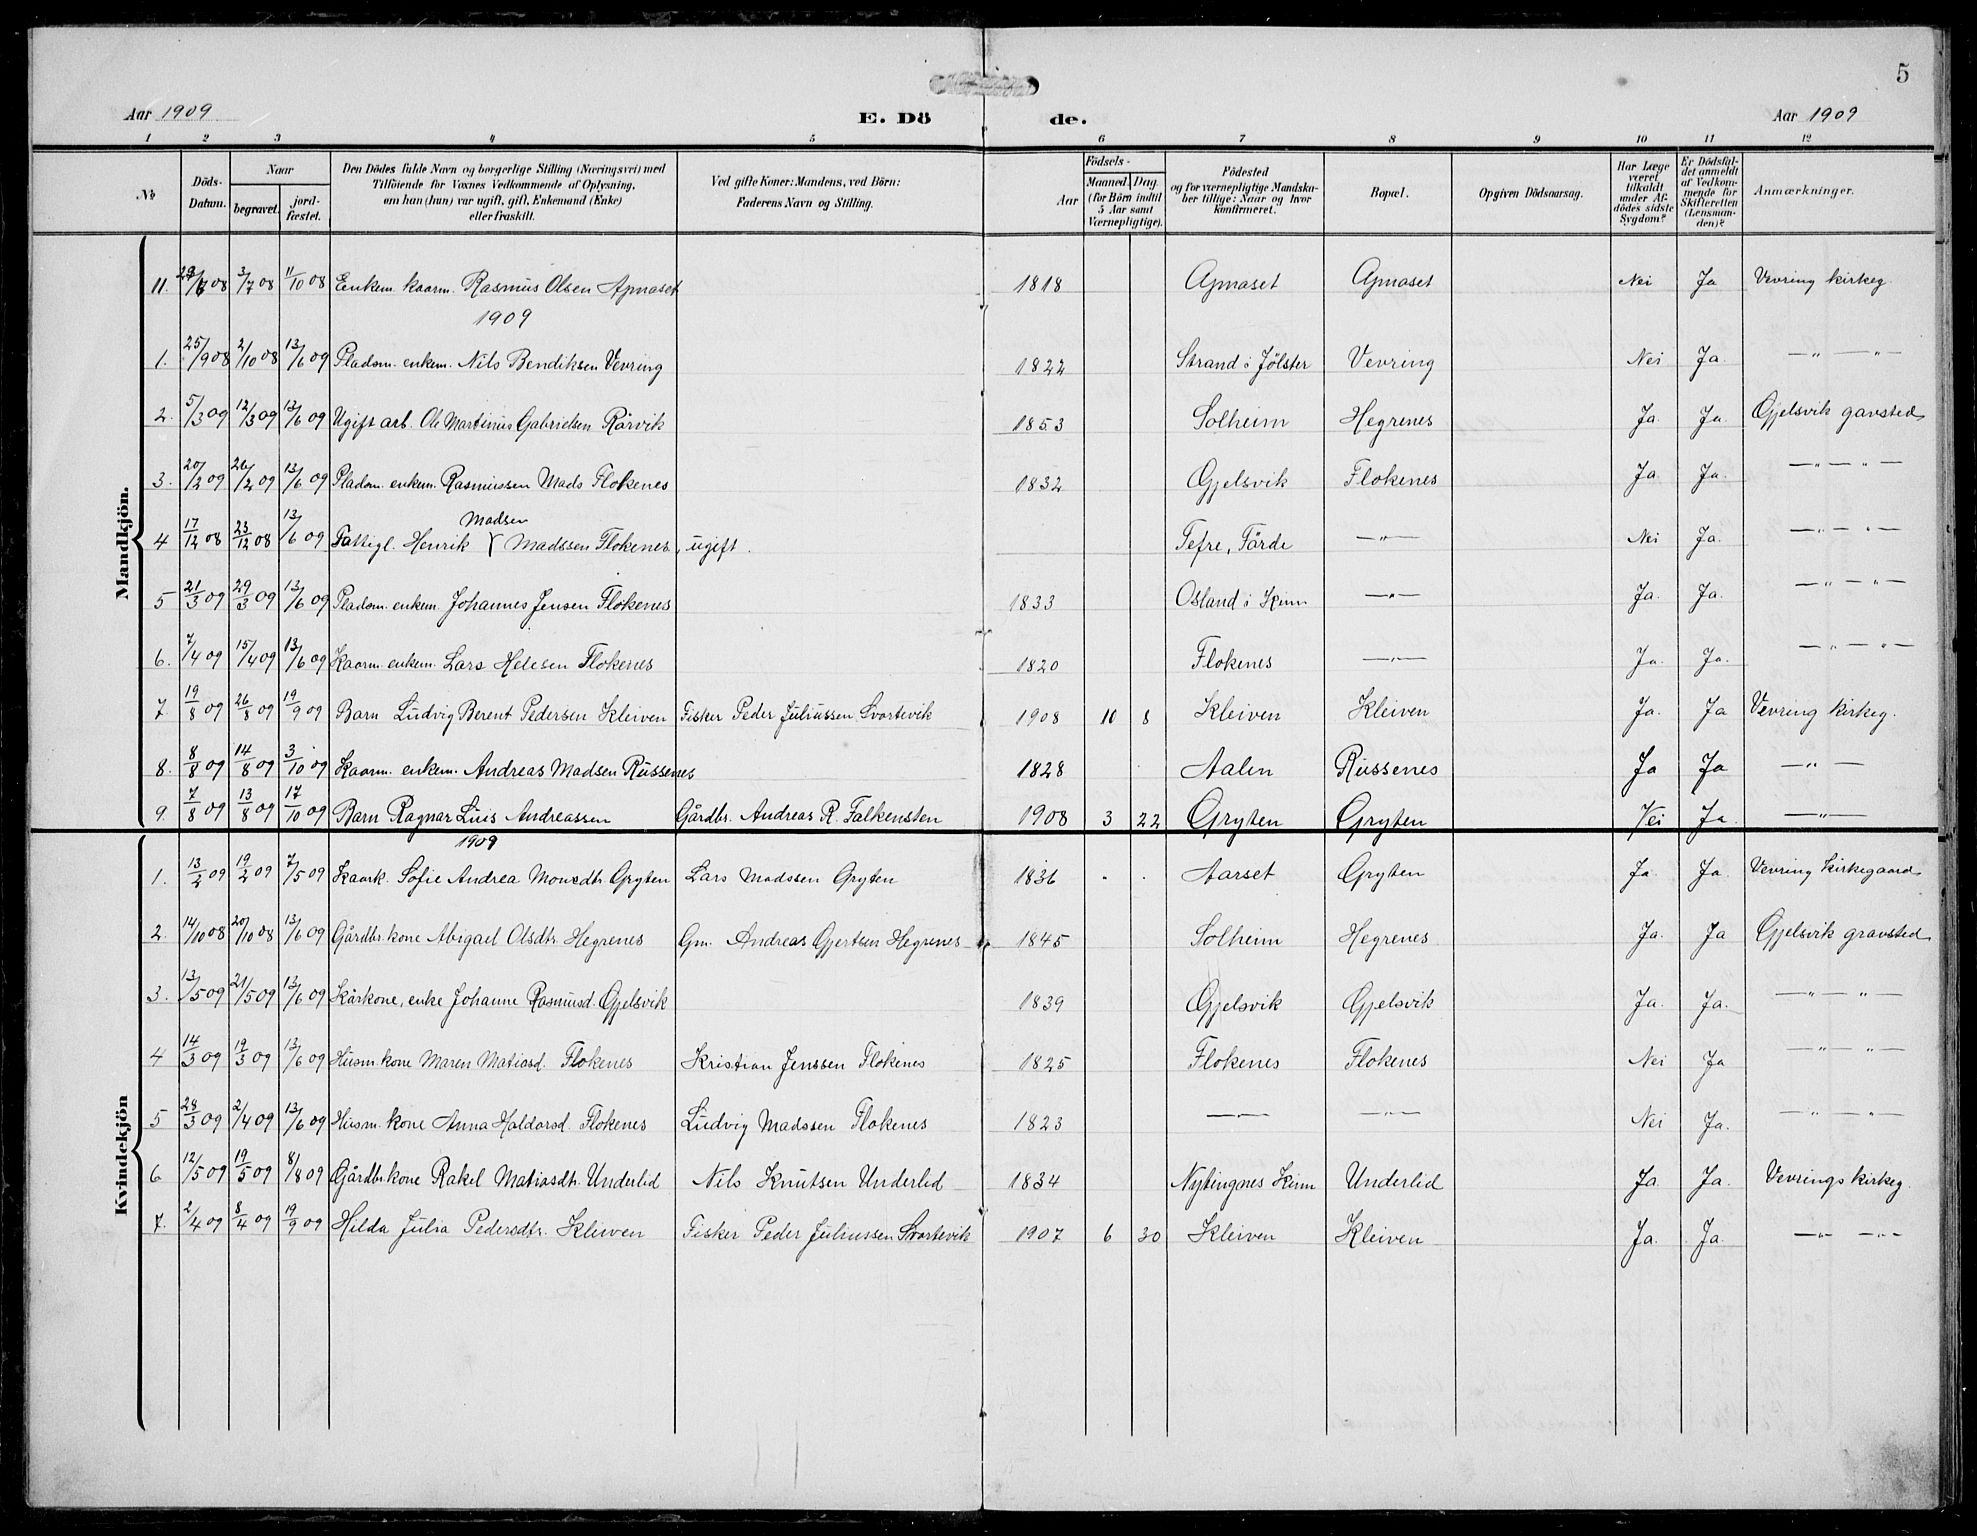 5
Aar 1909
E. Dö
de.
Aar 1909
1 2 3 4 5 6 7 8 9 10 11 12
№
Döds-Datum.
Naar
begravet.
jord-fæstet.
Den Dödes fulde Navn og borgerlige Stilling (Næringsvei) med
Tilföiende for Voxnes Vedkommende af Oplysning,
om han (hun) var ugift, gift, Enkemand (Enke)
eller fraskilt.
Ved gifte Koner: Mandens, ved Börn:
Faderens Navn og Stilling.
Födsels-
Aar
Maaned. Dag.
(for Börn indtil
5 Aar samt
Værnepligtige).
Födested
og for værnepligtige Mandska-
ber tillige: Naar og hvor
Konfirmeret.
Bopæl.
Opgiven Dödsaarsag.
Har Læge
været
tilkaldt
under Af-
dödes sidste
Sygdom?
Er Dödsfal-
det anmeldt
af Vedkom-
mende for
Skifteretten
(Lensman-
den)?
Anmærkninger.
Mandkjön.
11. 29/6 08 3/7 08 11/10 08 Enkem. kaarm. Rasmus Olsen Apnaset 1818 Apnaset Apnaset Nei Ja Vevring kirkeg.
1909
1. 25/9 08 2/10 08 13/6 09 Pladsm. enkem. Nils Bendiksen Vevring 1822 Strand i Jölster Vevring Nei Ja. —„— —„—
2. 5/3 09 12/3 09 13/6 09 Ugift arb. Ole Martinus Gabrielsen Rörvik 1853 Solheim Hegrenes Ja. Ja. Gjelsvik gavsted
3. 20/2 09 26/2 09 13/6 09 Pladsm. enkem. Rasmussen Mads Flokenes 1832 Gjelsvik Flokenes Ja. Ja. —„—„—„—
Madsen
4 17/12 08 23/12 08 13/6 09 Fattigl. Henrik Madssen Flokenes, ugift. Tefre, Förde —„— Nei Ja. —„—„—„—
5 21/3 09 29/3 09 13/6 09 Pladsm. enkem. Johannes Jensen Flokenes 1833 Osland i Kinn —„— Ja. Ja. —„—„—„—
6. 7/4 09 15/4 09 13/6 09 Kaarm. enkem. Lars Helesen Flokenes 1820 Flokenes —„— Ja. Ja. —„—„—„—
7 19/8 09 26/8 09 19/9 09 Barn Ludvig Berent Pedersen Kleiven Fisker Peder Juliussen Svortevik 1908 10 8 Kleiven Kleiven Ja. Ja Vevring kirkeg.
8. 8/8 09 14/8 09 3/10 09 Kaarm. enkem. Andreas Madsen Russenes 1828 Aalen Russenes Ja Ja —„—
9. 7/8 09 13/8 09 17/10 09 Barn Ragnar Luis Andreassen Gårdbr. Andreas R. Falkensten 1908 3 22 Gryten Gryten Nei Ja. —„—
Kvindekjön
1909
1. 13/2 09 19/2 09 7/5 09 Kaark. Sofie Andrea Monsdtr Gryten Lars Madssen Gryten 1836 . . Aarset Gryten Ja. Ja. Vevring Kirkegaard
2. 14/10 08 20/10 08 13/6 09 Gårdbr. kone Abigael Olsdtr. Hegrenes Gm. Andreas Gjertsen Hegrenes 1845 Solheim Hegrenes Ja. Ja Gjelsvik gravsted
3. 13/5 09 21/5 09 13/6 09 Kårkone, enke Johanne Rasmusd. Gjelsvik 1839 Gjelsvik Gjelsvik Ja. Ja. —„—„—
4 14/3 09 19/3 09 13/6 09 Husm. kone Maren Matiasd. Flokenes Kristian Jenssen Flokenes 1825 Flokenes Flokenes Nei Ja —„—„—
5 28/3 09 2/4 09 13/6 09 Husm. kone Anna Haldorsd. Flokenes Ludvig Madssen Flokenes 1823 —„— —„— Nei Ja. —„—„—
6 12/5 09 19/5 09 8/8 09 Gårdbr. kone Rakel Matiasdtr. Underlid Nils Knutsen Underlid 1834 Nytingnes Kinn Underlid Ja Ja. Vevrings kirkeg.
7. 2/4 09 8/4 09 19/9 09 Hilda Julia Pedersdtr. Kleiven Fisker Peder Juliussen Svortevik 1907 6 30 Kleiven Kleiven Ja. Ja. —„— —„—